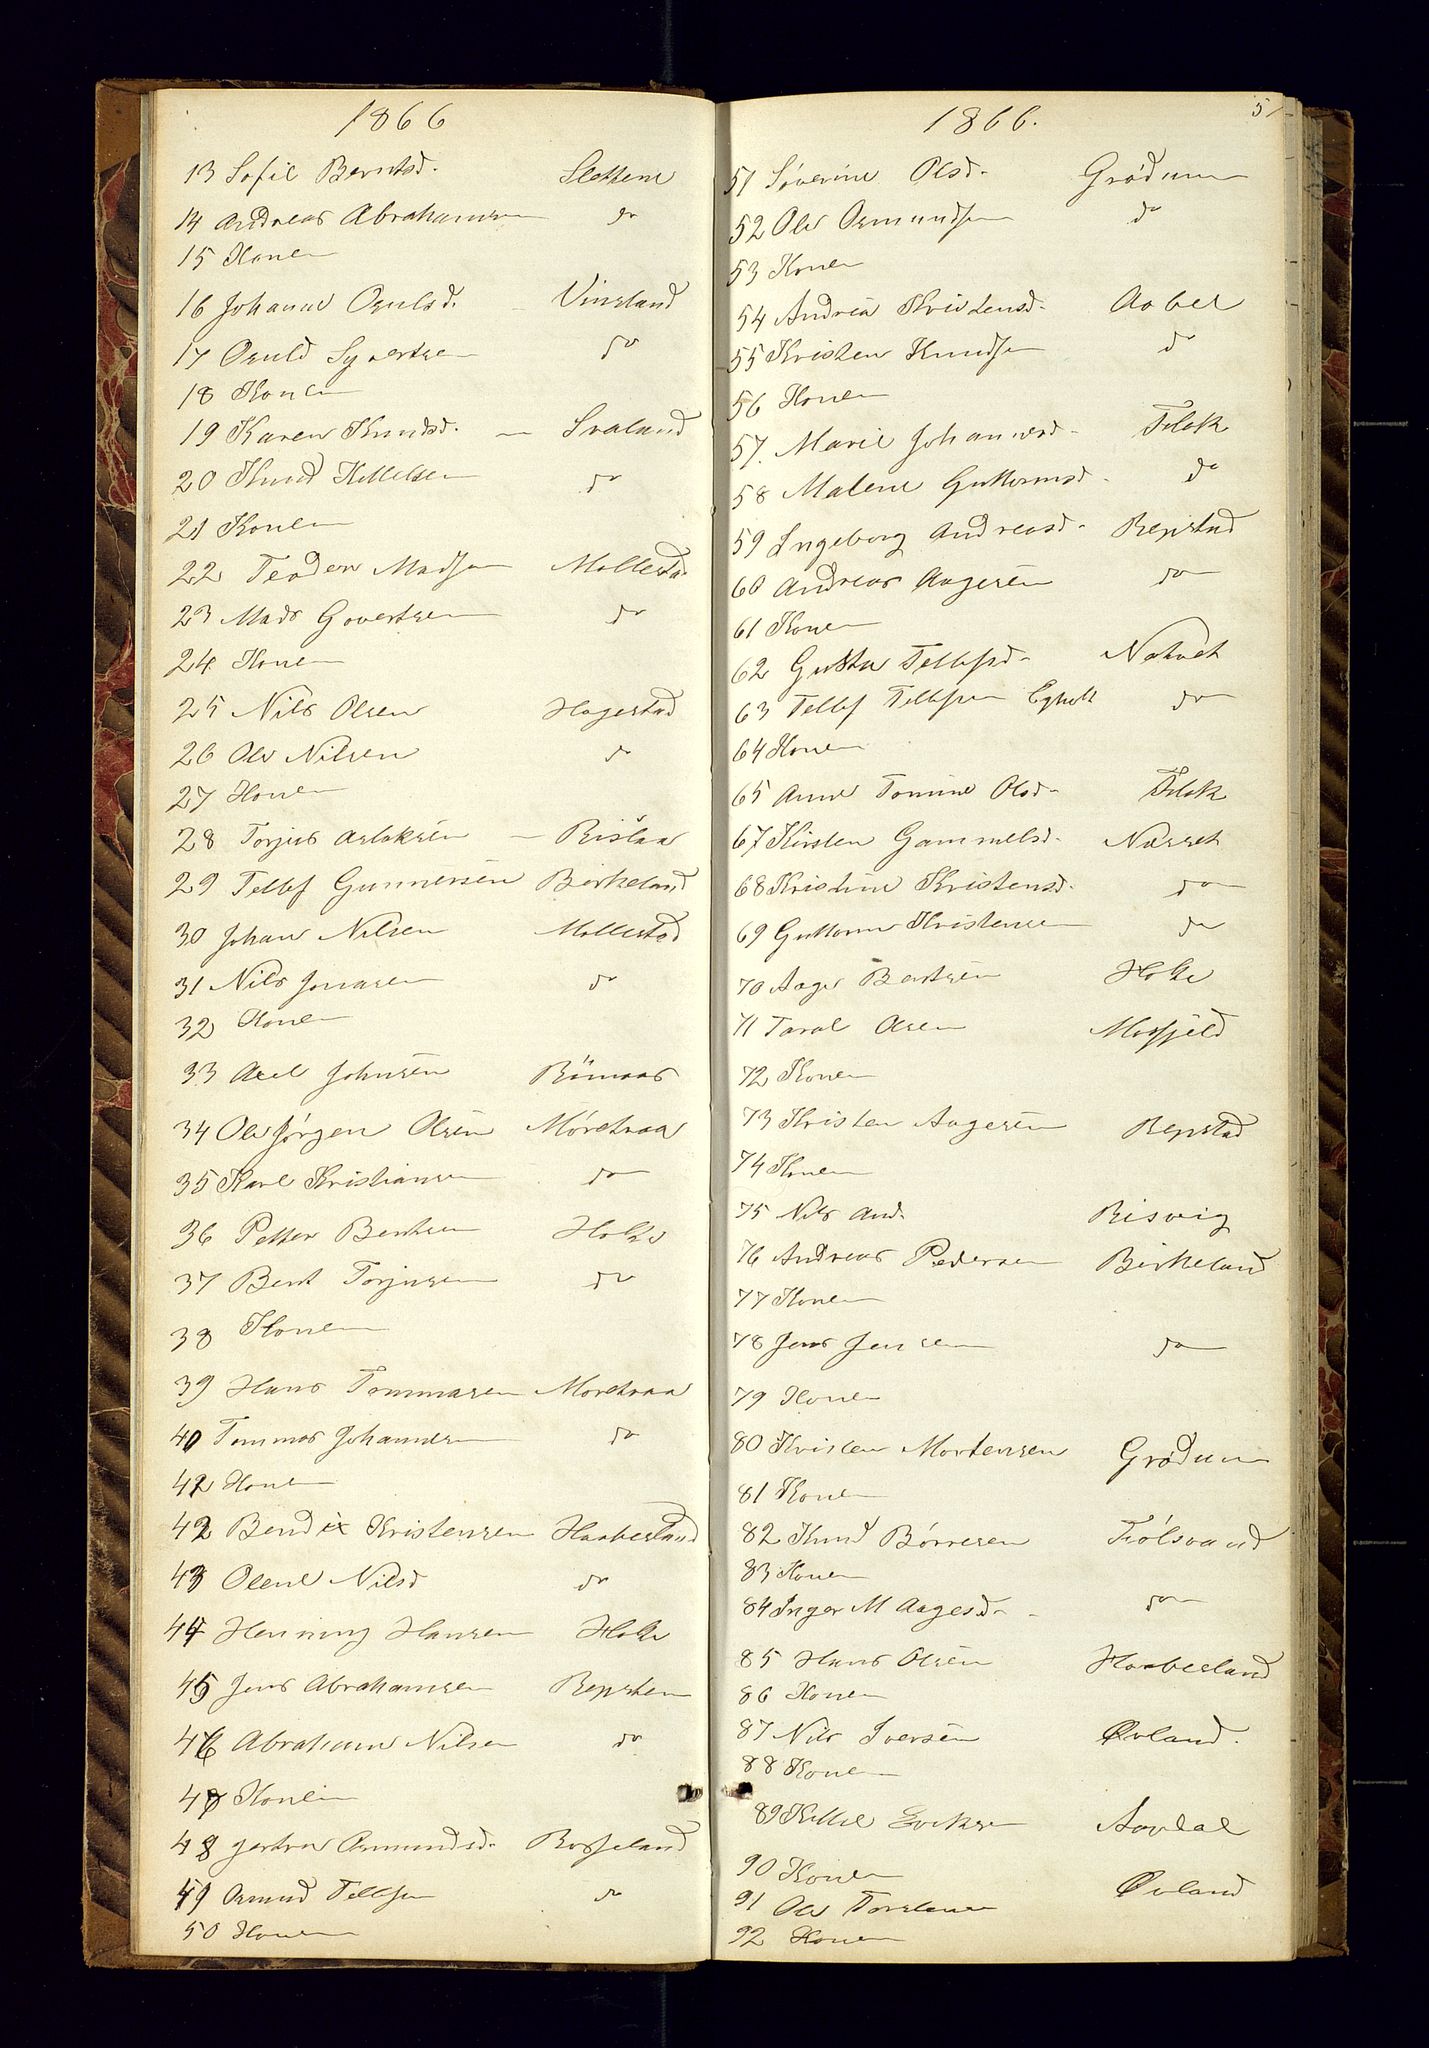 1866
13 Sofie Berntsd. Slettene
14 Andreas Abrahamsen do
15 Konen
16 Johanne Osulsd. - Vinsland
17 Osuld Syvertsen do
18 Konen
19 Karen Knudsd. - Svaland
20 Knud Kittelsen do
21 Konen
22 Teodor Madsen Mollestad
23 Mads Govertsen do
24 Konen
25 Nils Olsen Hagestad
26 Ole Nilsen do
27 Konen
28 Torjus Aslaksen - Rislaa
29 Tellef Gunnersen Birkeland
30 Johan Nilsen Mollestad
31 Nils Jonasen do
32 Konen
33 Axel Johnsen
34 Ole Jørgen Olsen Møretraa
35 Karl Kristiansen do
36 Petter Bentsen Holte
37 Bent Torjusen do
38 Konen
39 Hans Tommasen Moretraa
40 Tommas Johannesen do
41 Konen
42 Bendix Kristensen Haabesland
43 Olene Nilsd do
44 Henning Hansen Holte
45 Jens Abrahamsen Repsten
46 Abraham Nilsen do
47 Konen
48 Osmundsd. Rosseland
49 Osmund Tellefsen do
50 Konen
1866. 51
51 Søverine Olsd. Grødum
52 Ole Osmundsen do
53 Konen
54 Andrea Kristensd. Aabel
55 Kristen Knudsen do
56 Konen
57. Marie Johannesd. Flak
58 Malene Guttormsd. do
59 Ingeborg Andreasd. Repstad
60 Andreas Aagesen do
61 Konen
62 Gusta Tellefsd. Natvet
63 Tellef Tellefsen do
64 Konen
65 Anne Tomine Olsd. Flak
67 Kirsten Gammelsd. Næsset
68 Kristine Kristensd. do
69 Guttorm Kristensen do
70 Aage Bentsen Holte
71 Taral Olsen Mosfjeld
72 Konen
73 Kristen Aagesen Repstad
74 Konen
75 Nils And. Risvig
76 Andreas Pedersen Birkeland
77 Konen
78 Jens Jensen do
79 Konen
80 Kristen Mortensen Grødum
81 Konen
82 Knud Børresen Fjølsvand
83 Konen
84 Inger M Aagesd. - do
85 Hans Olsen Haabesland
86 Konen
87 Nils Iversen Øvland.
88 Konen
89 Kittel Aavdal
90 Konen
91 Ole Torstensen Øvland
92 Konen